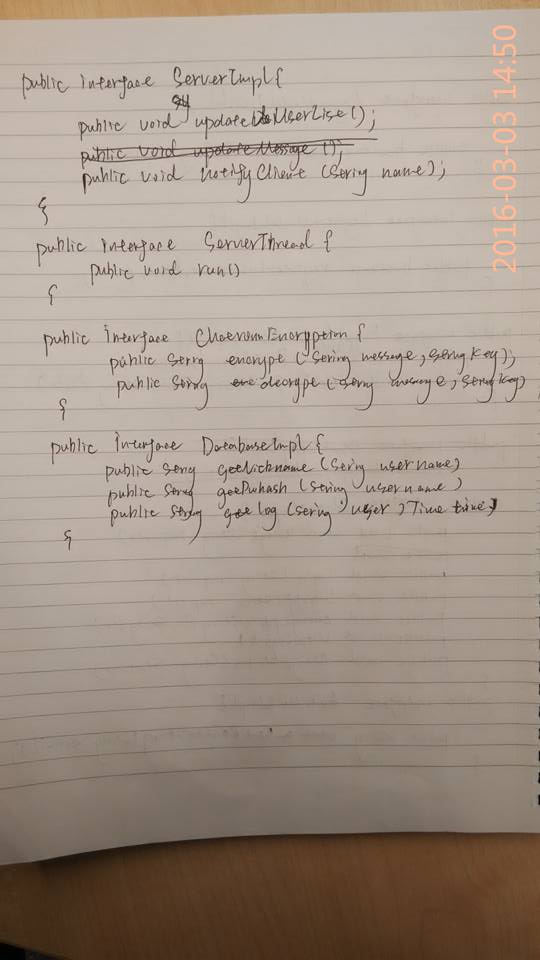 public interface ServerImpl{
public void updateUserList();
public void updateMessage();
public void notifyClient (String name);
}
public interface ServerThread {
public void run()
}
public Interface Encryption {
public String encrypt (String message, String key);
public String decrypt (String message, String key)
}
public Interface DatabaseImpl {
public String getNickname (String username)
public String getPwhash (String username)
public String getlog (String user, Time time)
}
2016-03-03 14:50